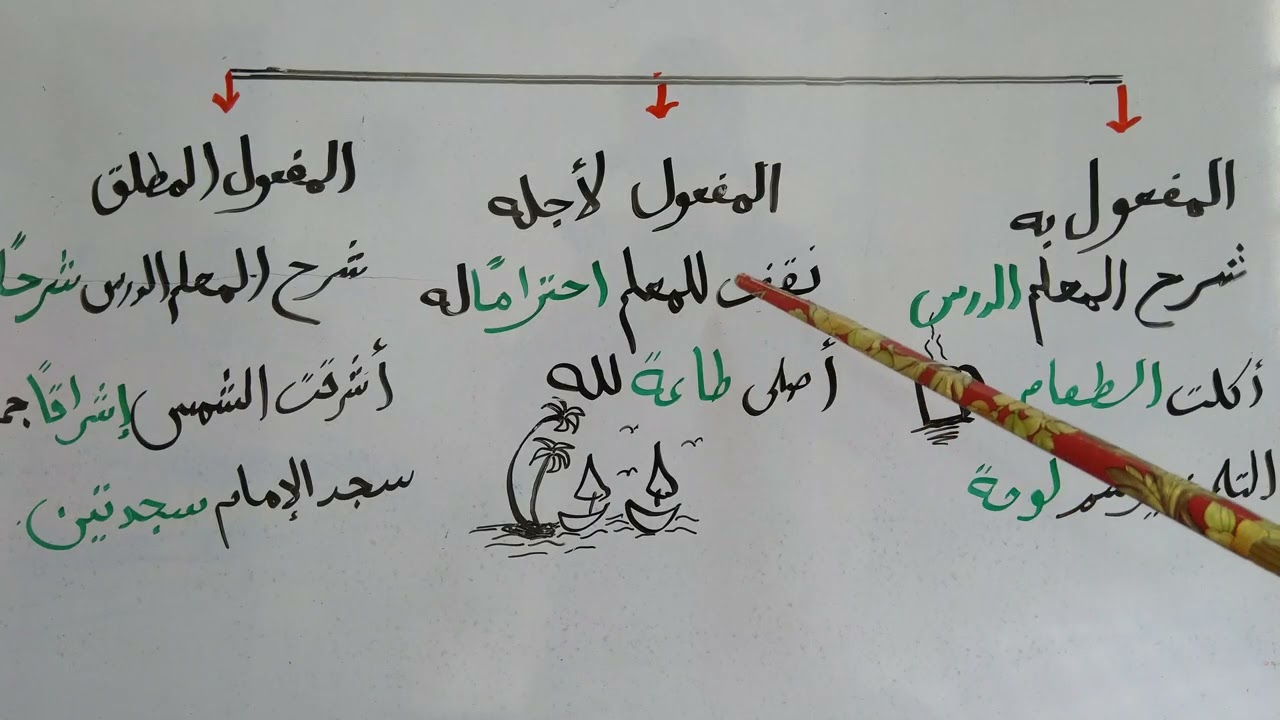 المفعول به
شرح المعلم الدرس
أكلت الطعام
لوحة
المفعول لأجله
نقف للمعلم احترامًا له
أصلي طاعةً لله
المفعول المطلق
شرح المعلم الدرس شرحًا
أشرقت الشمس إشراقًا
سجد الإمام سجدتين